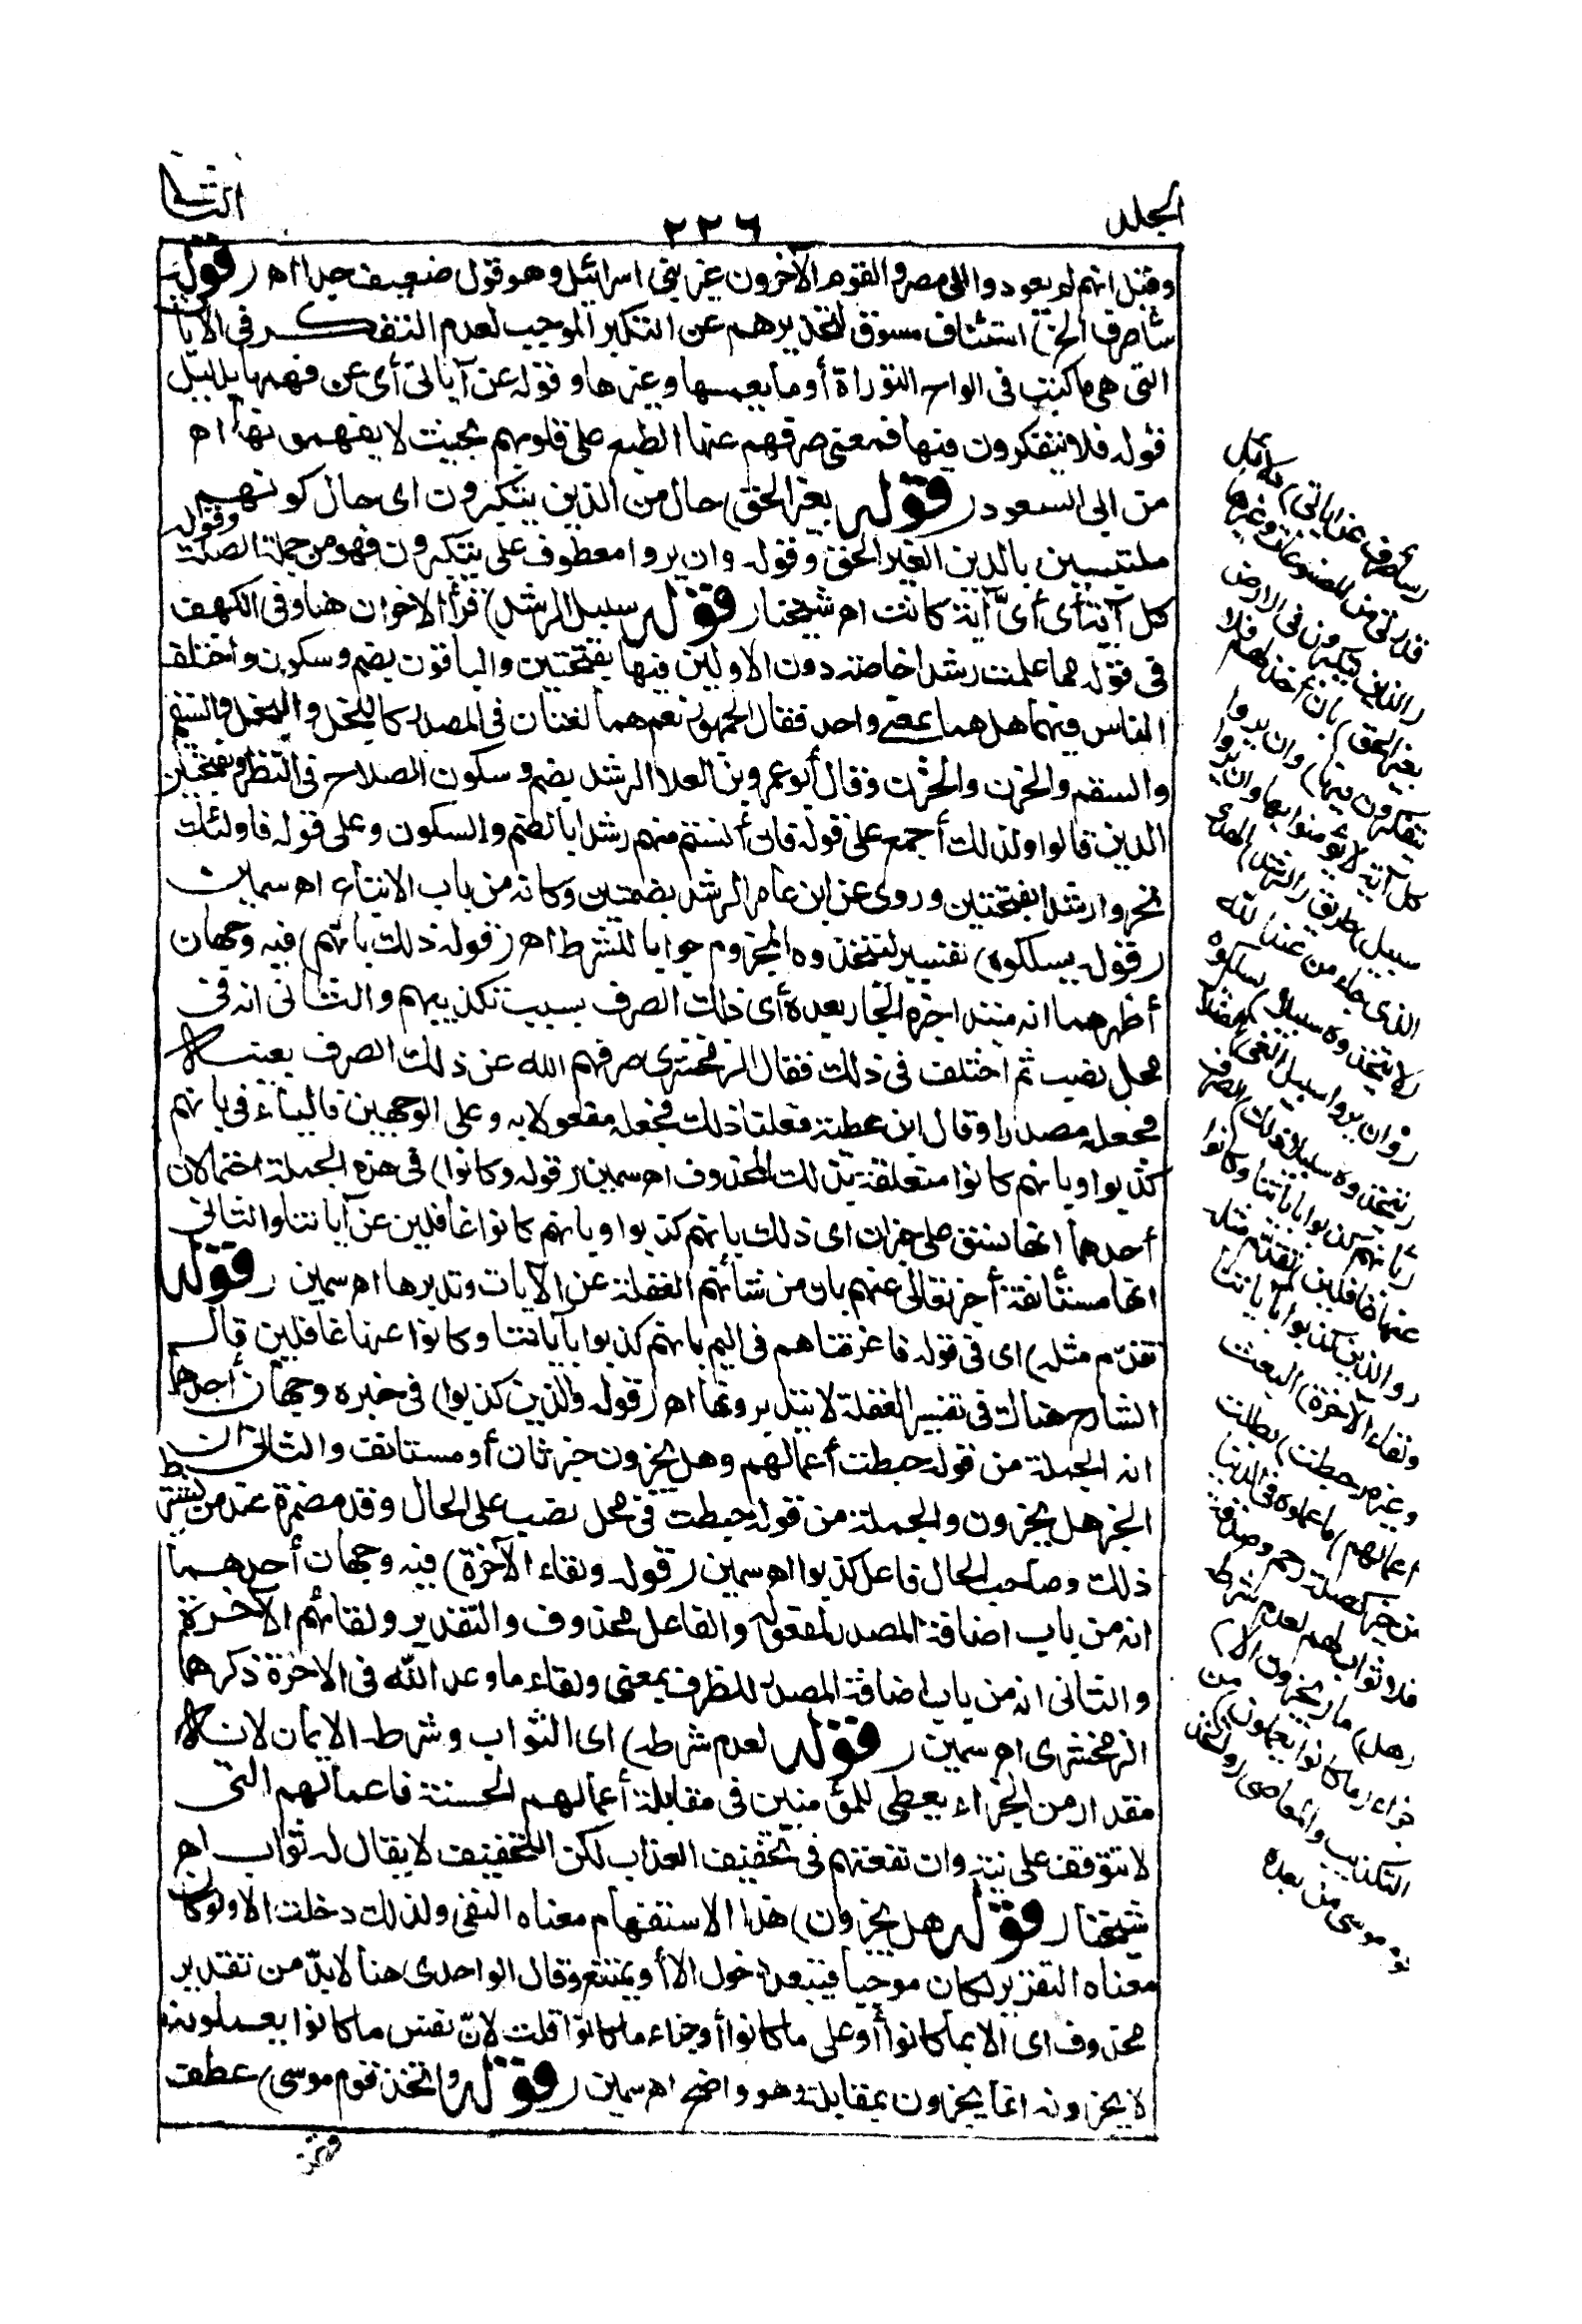 الجلد
٢٢٦
الثانى
وقيل انهم لم يعودوا الى مصر والقوم الآخرون غير بنى اسرائيل وهو قول ضعيف جدا اه (قوله
سأصرف الخ) استئناف مسوق لتحذيرهم عن التكبر الموجب لعدم التفكر فى الآيات
التى هى ما كتبت فى الواح التوراة أو ما يعمها وغيرها وقوله عن آياتى أى عن فهمها بدليل
قوله فلا يتفكرون فيها فمعنى صرفهم عنها الطبع على قلوبهم بحيث لا يفهمونها اه
من ابى السعود (قوله بغير الحق) حال من الذين يتكبرون اى حال كونهم
ملتبسين بالدين الغير الحق وقوله وان يروا معطوف على يتكبرون فهو من جملة الصلة وقوله
كل آية أى أىّ آية كانت اه شيخنا (قوله سبيل الرشد) قرأ الاخوان هنا وفى الكهف
فى قوله مما علمت رشدا خاصة دون الاولين فيها بفتحتين والباقون بضم وسكون واختلف
الناس فيهما هل هما بمعنى واحد فقال الجمهور نعم هما لغتان فى المصدر كالبخل والبخل والسقم
والسقم والحزن والحزن وقال أبو عمرو بن العلا الرشد بضم وسكون الصلاح فى النظر وبفتحتين
الدين قالوا ولذلك أجمع على قوله فان أنستم منهم رشدا بالضم والسكون وعلى قوله فاولئك
تحروا رشدا بفتحتين وروى عن ابن عامر الرشد بضمتين وكانه من باب الاتباع اه سمين
(قوله يسلكوه) تفسير لتتخذوه المجزوم جوابا للشرط اه (قوله ذلك بانهم) فيه وجهان
أظهرهما انه مبتدا خبره الجار بعده أى ذلك الصرف بسبب تكذيبهم والثانى انه فى
محل نصب ثم اختلف فى ذلك فقال الزمخشرى صرفهم الله عن ذلك الصرف بعينه
فجعله مصدرا وقال ابن عطية فعلنا ذلك فجعله مفعولا به وعلى الوجهين فالباء فى بانهم
كذبوا وبانهم كانوا متعلقة بذلك المحذوف اه سمين (قوله وكانوا) فى هذه الجملة احتمالان
أحدهما انها نسق على خبر ان اى ذلك بانهم كذبوا وبانهم كانوا غافلين عن آياتنا والثانى
انها مستأنفة أخبر تعالى عنهم بان من شأنهم الغفلة عن الآيات وتدبرها اه سمين (قوله
تقدّم مثله) اى فى قوله فاغرقناهم فى اليم بانهم كذبوا بآياتنا وكانوا عنها غافلين قال
الشارح هناك فى تفسير الغفلة لا يتدبرونها اه (قوله والذين كذبوا) فى خبره وجهان أحدهما
انه الجملة من قوله حبطت أعمالهم وهل يجزون خبر ثان أو مستأنف والثانى ان
الخبر هل يجزون والجملة من قوله حبطت فى محل نصب على الحال وقد مضمرة عند من يشترط
ذلك وصاحب الحال فاعل كذبوا اه سمين (قوله ولقاء الآخرة) فيه وجهان أحدهما
انه من باب اضافة المصدر لمفعوله والفاعل محذوف والتقدير ولقائهم الآخرة
والثانى انه من باب اضافة المصدر للظرف بمعنى ولقاء ما وعد الله فى الآخرة ذكرهما
الزمخشرى اه سمين (قوله لعدم شرطه) اى الثواب وشرطه الايمان لانه
مقدار من الجزاء يعطى للمؤمنين فى مقابلة أعمالهم الحسنة فاعمالهم التى
لا تتوقف على نية وان نفعتهم فى تخفيف العذاب لكن التخفيف لا يقال له ثواب اه
شيخنا (قوله هل يجزون) هذا الاستفهام معناه النفى ولذلك دخلت الا ولو كان
معناه التقرير لكان موجبا فيبعد دخول الا أو يمتنع وقال الواحدى هنا لا بدّ من تقدير
محذوف اى الا بما كانوا أو على ما كانوا أو جزاء ما كانوا قلت لانّ نفس ما كانوا يعملونه
لا يجزونه انما يجزون بمقابله وهو واضح اه سمين (قوله واتخذ قوم موسى) عطف
(سأصرف عن آياتى) دلائل
قدرتى من المصنوعات وغيرها
(الذين يتكبرون فى الارض
بغير الحق) بان أخذلهم فلا
يتفكرون فيها (وان يروا
كل آية لا يؤمنوا بها وان يروا
سبيل) طريق (الرشد) الهدى
الذى جاء من عند الله
(لا يتخذوه سبيلا) يسلكوه
(وان يروا سبيل الغى) الضلال
(يتخذوه سبيلا ذلك) الصرف
(بانهم كذبوا بآياتنا وكانوا
عنها غافلين) تقدّم مثله
(والذين كذبوا بآياتنا
ولقاء الآخرة) البعث
وغيره (حبطت) بطلت
(أعمالهم) ما عملوه فى الدنيا
من خير كصلة رحم وصدقة
فلا ثواب لهم لعدم شرطه
(هل) ما (يجزون الا)
جزاء (ما كانوا يعملون) من
التكذيب والمعاصى (واتخذ
قوم موسى من بعده